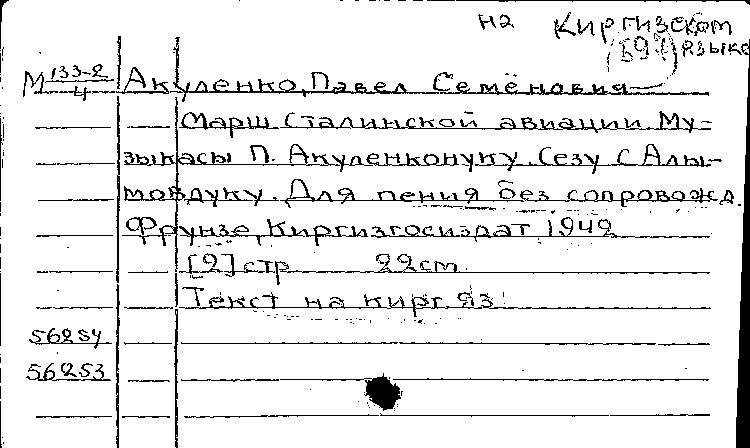 на Киргизском
(597) языке
М 133-2/4 Акуленко, Павел Семёнович
Марш Сталинской авиации. Му-
зыкасы П. Акуленконуку. Сезу С Алы-
мовдуку. Для пения без сопровожд.
Фрунзе, Киргизгосиздат 1942
[2] стр 22см
Текст на кирг. яз.
56254
56253